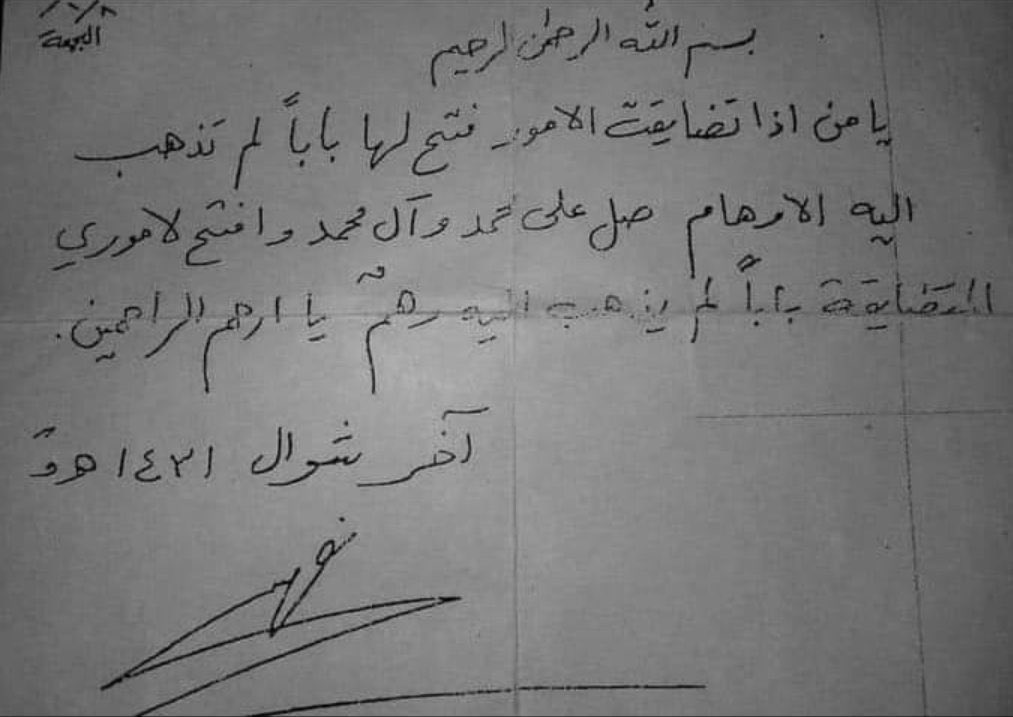 الجمعة
بسم الله الرحمن الرحيم
يا من اذا تضايقت الامور فتح لها باباً لم تذهب
اليه الاوهام صل على محمد وآل محمد وافتح لاموري
المتضايقة باباً لم يذهب اليه وهمٌ يا ارحم الراحمين.
آخر شوال ١٤٣١ هـ